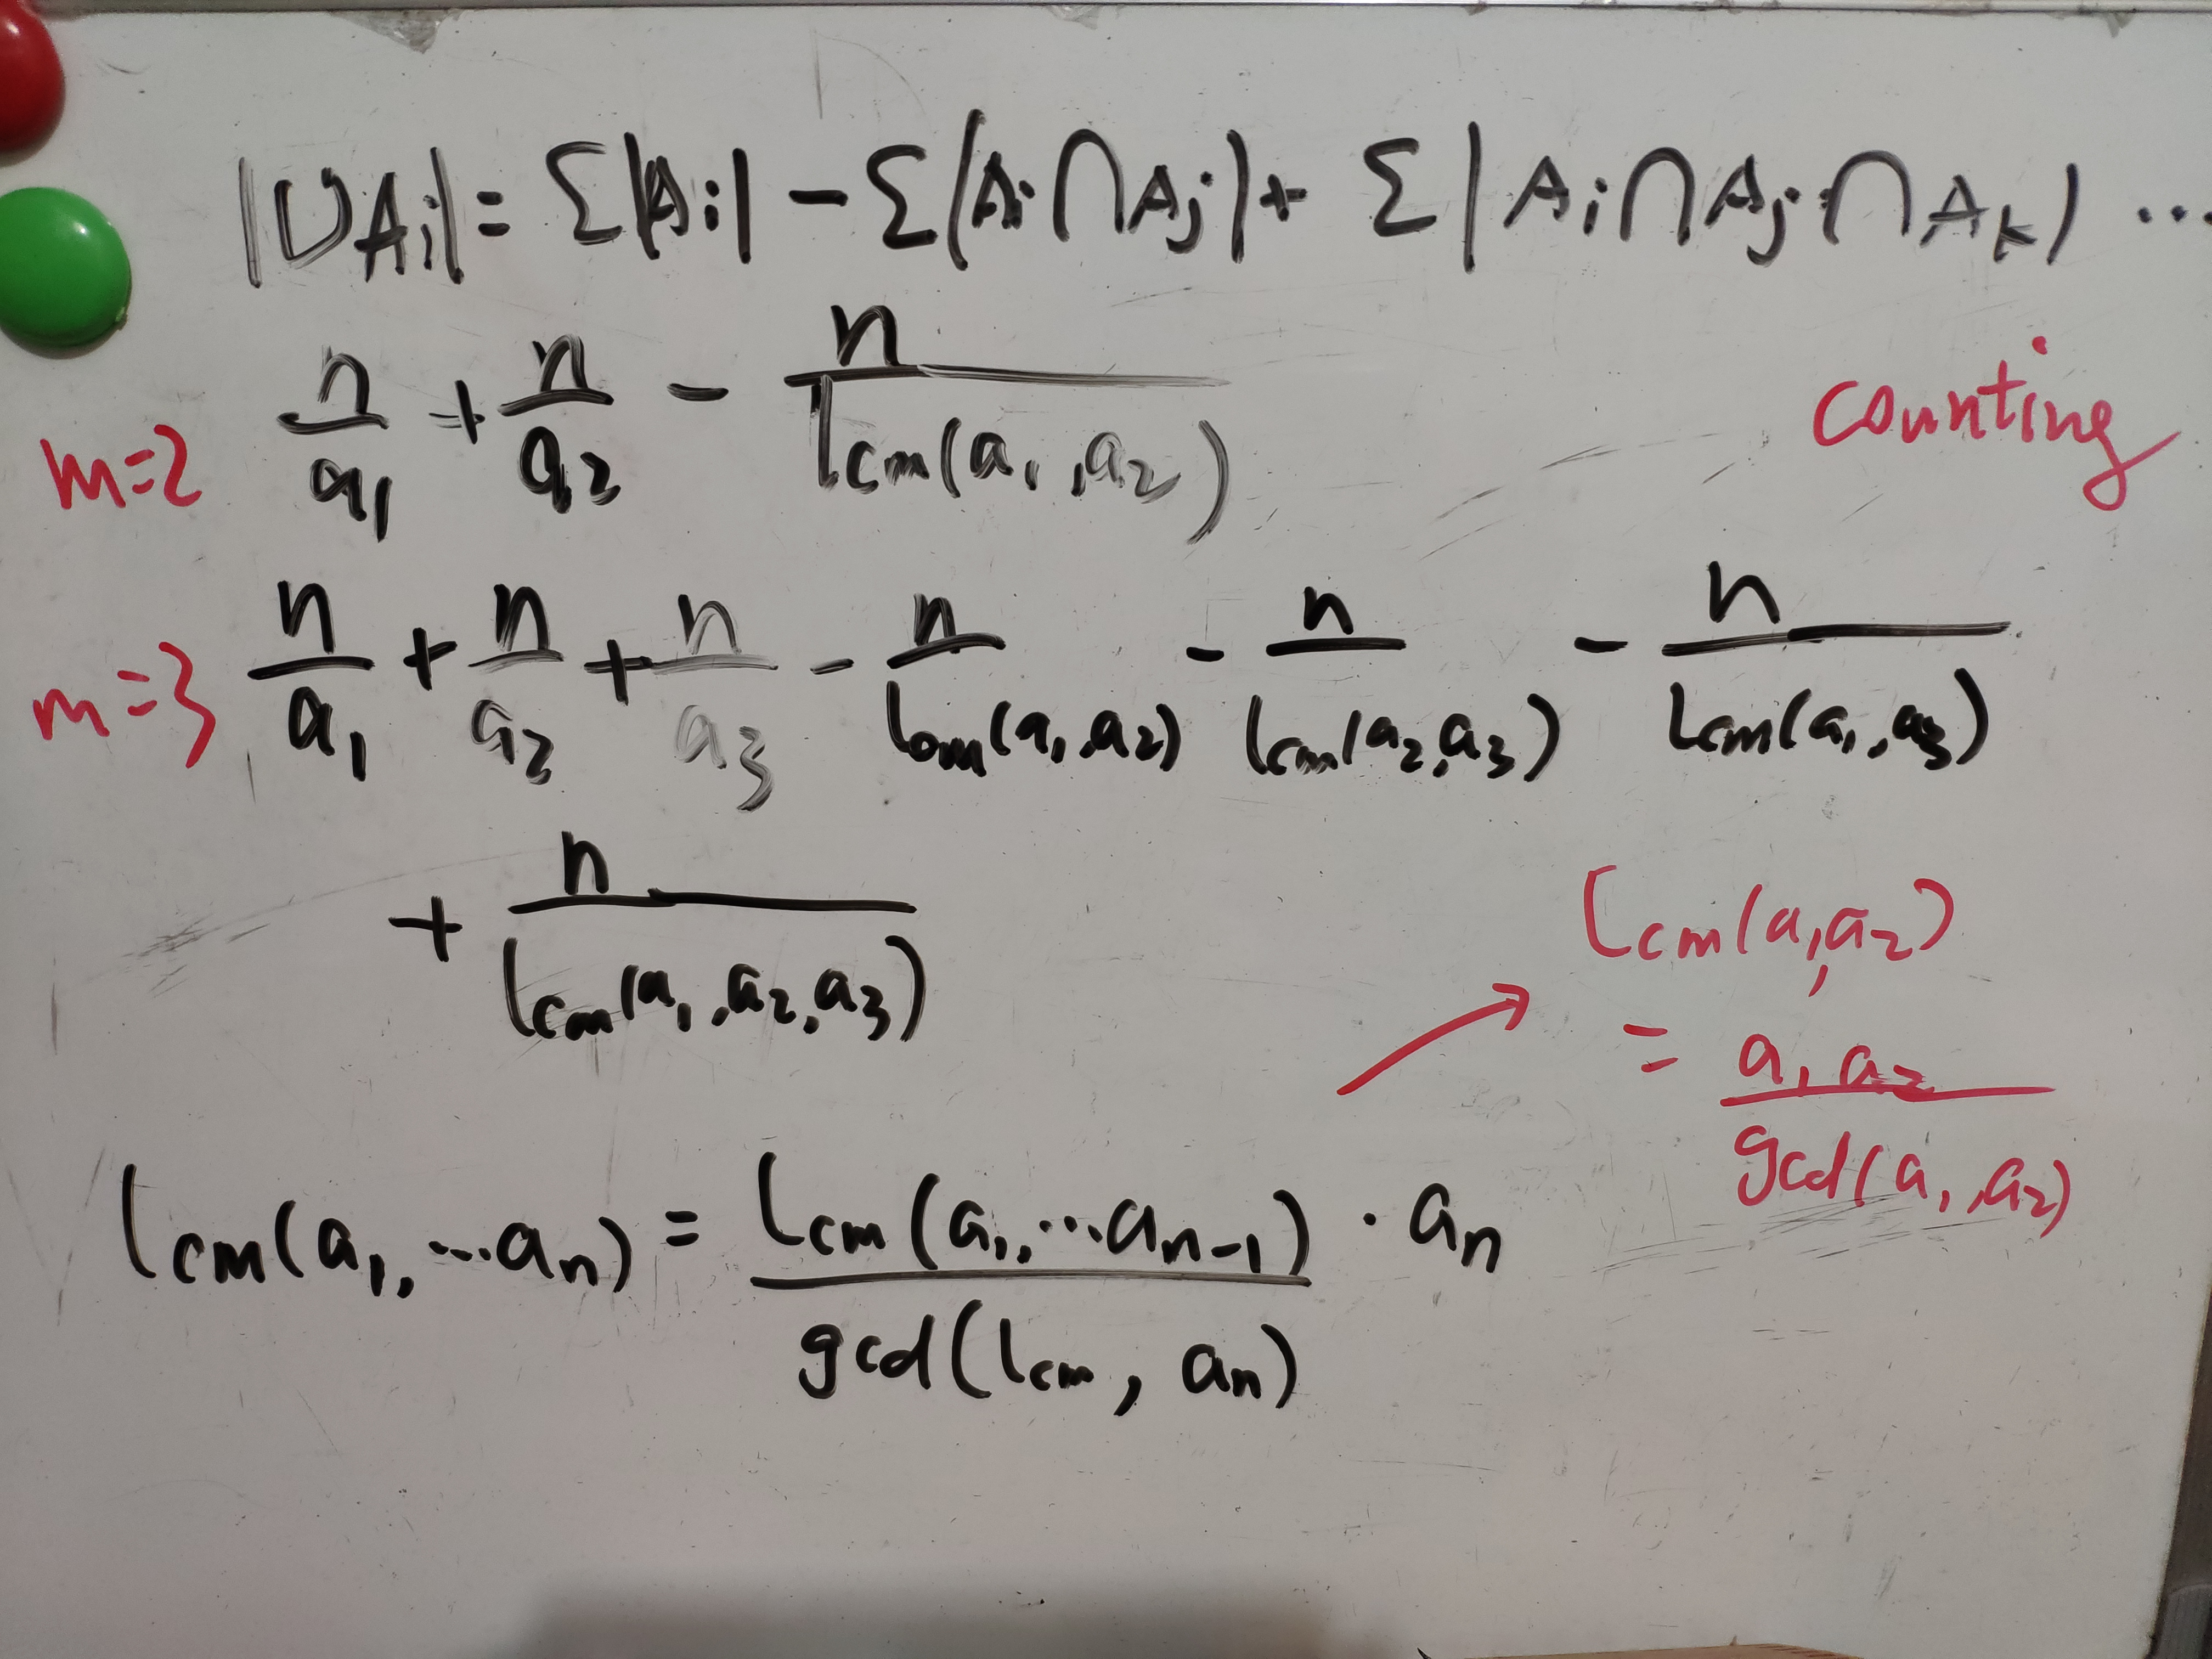 |∪Ai| = Σ|Ai| − Σ|Ai ∩ Aj| + Σ|Ai ∩ Aj ∩ Ak| ...
m=2 n/a₁ + n/a₂ − n/lcm(a₁,a₂)
counting
m=3 n/a₁ + n/a₂ + n/a₃ − n/lcm(a₁,a₂) − n/lcm(a₂,a₃) − n/lcm(a₁,a₃)
+ n/lcm(a₁,a₂,a₃)
lcm(a₁,a₂)
= a₁a₂/gcd(a₁,a₂)
lcm(a₁,...aₙ) = lcm(a₁,...aₙ₋₁)/gcd(lcm, aₙ) · aₙ